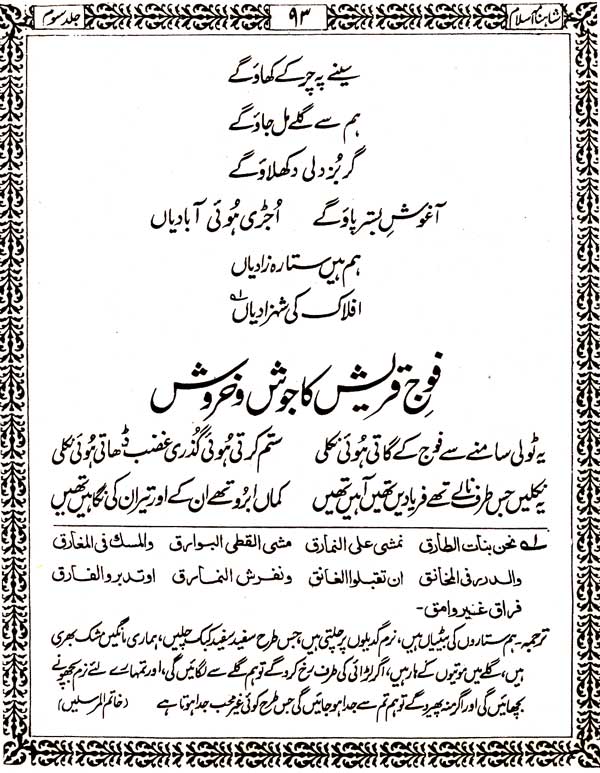 شاہنامہ اسلام ۹۳ جلد سوم
سینے پہ چرکے کھاؤ گے
ہم سے گلے مل جاؤ گے
گر بُزدلی دکھلاؤ گے
آغوشِ بستر پاؤ گے اُجڑی ہُوئی آبادیاں
ہم ہیں ستارہ زادیاں
افلاک کی شہزادیاں لے
فوجِ قریش کا جوش و خروش
یہ ٹولی سامنے سے فوج کے گاتی ہُوئی نکلی ستم کرتی ہُوئی گذری غضب ڈھاتی ہُوئی نکلی
یہ نکلیں جس طرف نالے تھے فریادیں تھیں آہیں تھیں کماں ابرو تھے ان کے اور تیر ان کی نگاہیں تھیں
لے نحن بنات الطارق نمشی علی النمارق مشی القطی البوارق والمسك فی المفارق
والدر فی المخانق ان تقبلوا الغانق ونفرش النمارق اوتدبروا نفارق
فراق غیر وامق-
ترجمہ- ہم ستاروں کی بیٹیاں ہیں، نرم گدیلوں پر چلتی ہیں، جس طرح سفید سفید کبک چلیں، ہماری مانگیں مشک بھری
ہیں، گلے میں موتیوں کے ہار ہیں، اگر لڑائی کی طرف رُخ کرو گے تو ہم گلے سے لگائیں گی، اور تمہارے لئے نرم بچھونے
بچھائیں گی اور اگر منہ پھیرو گے تو ہم تم سے جدا ہو جائیں گی جس طرح کوئی غیر محب جدا ہوتا ہے (خاتم المرسلیں)